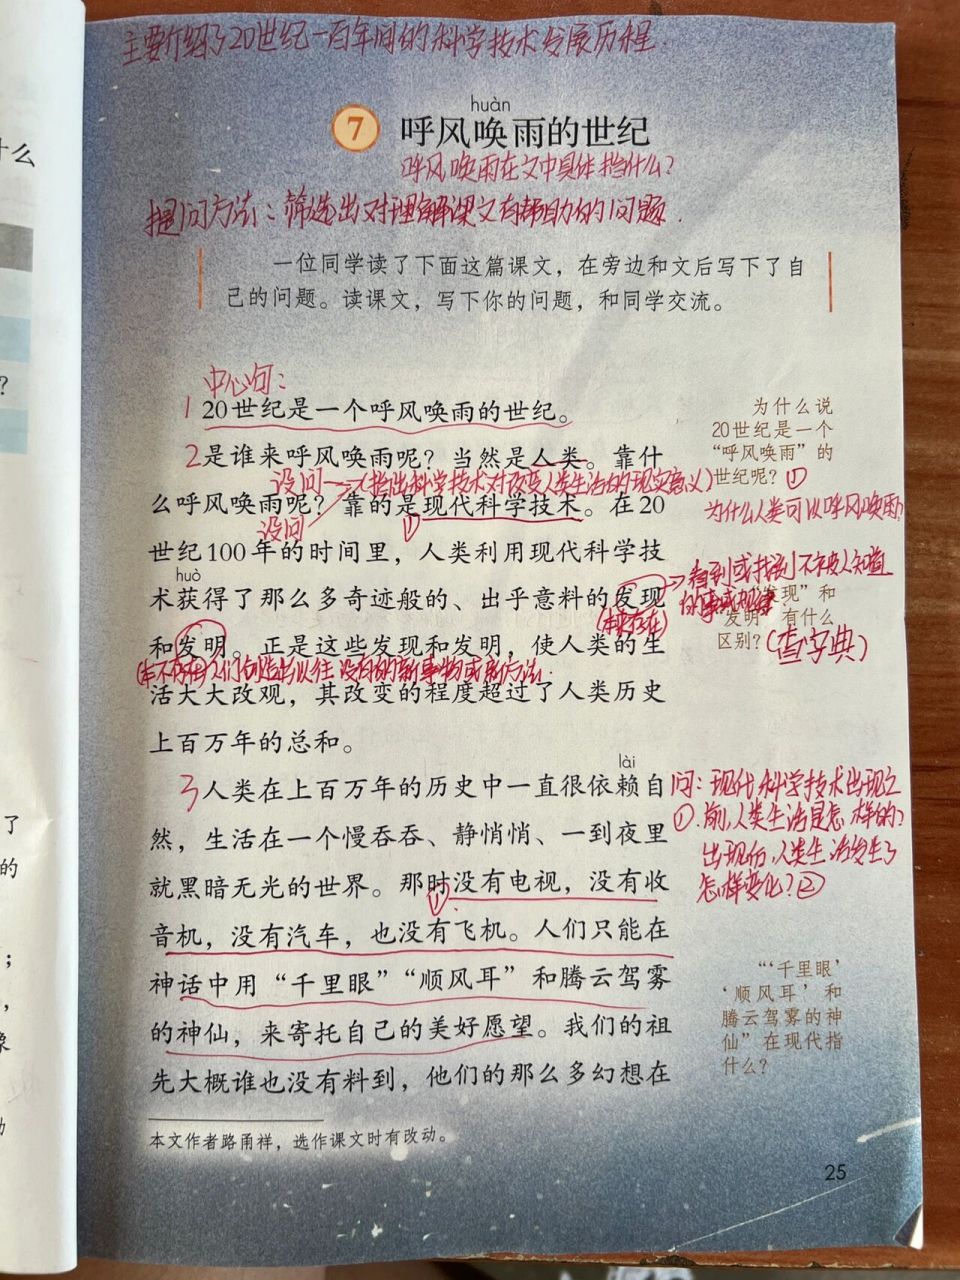 主要介绍了20世纪一百年间的科学技术发展历程.
huàn
7 呼风唤雨的世纪
呼风唤雨在文中具体指什么?
提问方法:筛选出对理解课文有帮助的问题.
一位同学读了下面这篇课文，在旁边和文后写下了自
己的问题。读课文，写下你的问题，和同学交流。
中心句:
1 20世纪是一个呼风唤雨的世纪。
2是谁来呼风唤雨呢？当然是人类。靠什
设问→(指出科学技术对改变人类生活的现实意义)
么呼风唤雨呢？靠的是现代科学技术。在20
设问
①
世纪100年的时间里，人类利用现代科学技
huò
术获得了那么多奇迹般的、出乎意料的发现
(本来存在)
和发明。正是这些发现和发明，使人类的生
(本不存在)人们创造出以往没有的新事物或新方法.
活大大改观，其改变的程度超过了人类历史
上百万年的总和。
lài
3人类在上百万年的历史中一直很依赖自
然，生活在一个慢吞吞、静悄悄、一到夜里
就黑暗无光的世界。那时没有电视，没有收
①
音机，没有汽车，也没有飞机。人们只能在
神话中用“千里眼”“顺风耳”和腾云驾雾
的神仙，来寄托自己的美好愿望。我们的祖
先大概谁也没有料到，他们的那么多幻想在
为什么说
20世纪是一个
“呼风唤雨”的
世纪呢？①
为什么人类可以呼风唤雨?
→看到或找到不被人知道
的事或规律.
“发现”和
“发明”有什么
区别？(查字典)
问:现代科学技术出现之
①.前,人类生活是怎样的?
出现后,人类生活发生了
怎样变化?②
“‘千里眼’
‘顺风耳’和
腾云驾雾的神
仙”在现代指
什么？
本文作者路甬祥，选作课文时有改动。
25
什么
?
了
的
；
，
像